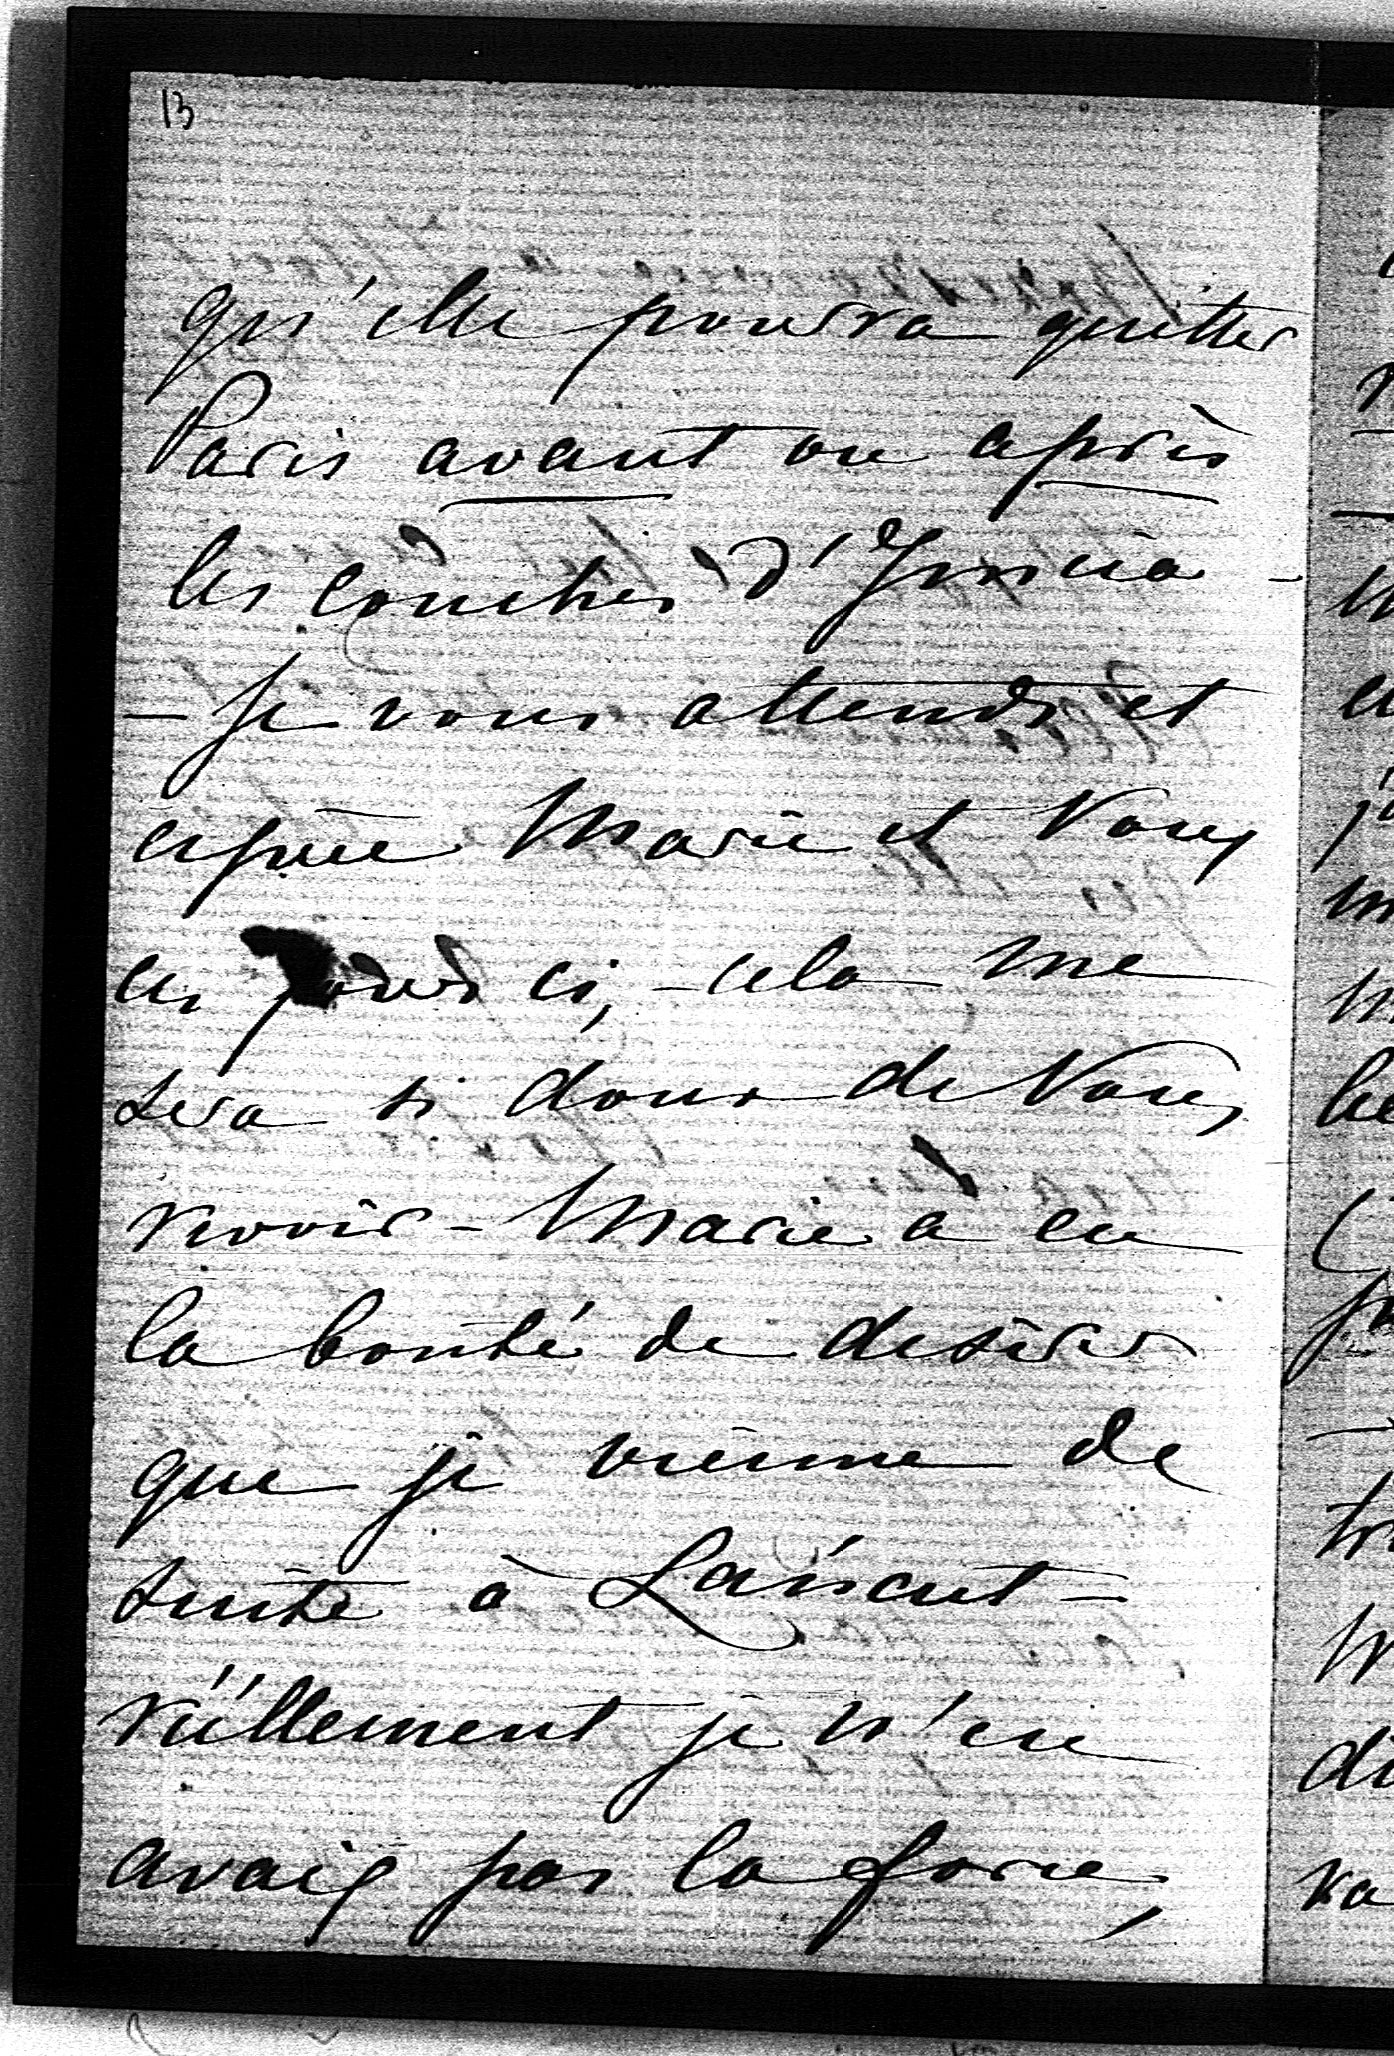 13
qu'elle pourra quitter
Paris avant ou après
les couches d'
- Je vous attends et
espère Marie et Vous
ces jours ci, - cela me
sera si doux de Vous
revoir - Marie a eu
la bonté de desirer
que je vienne de
suite à Lańcut -
réellement je n'en
avais pas la force,